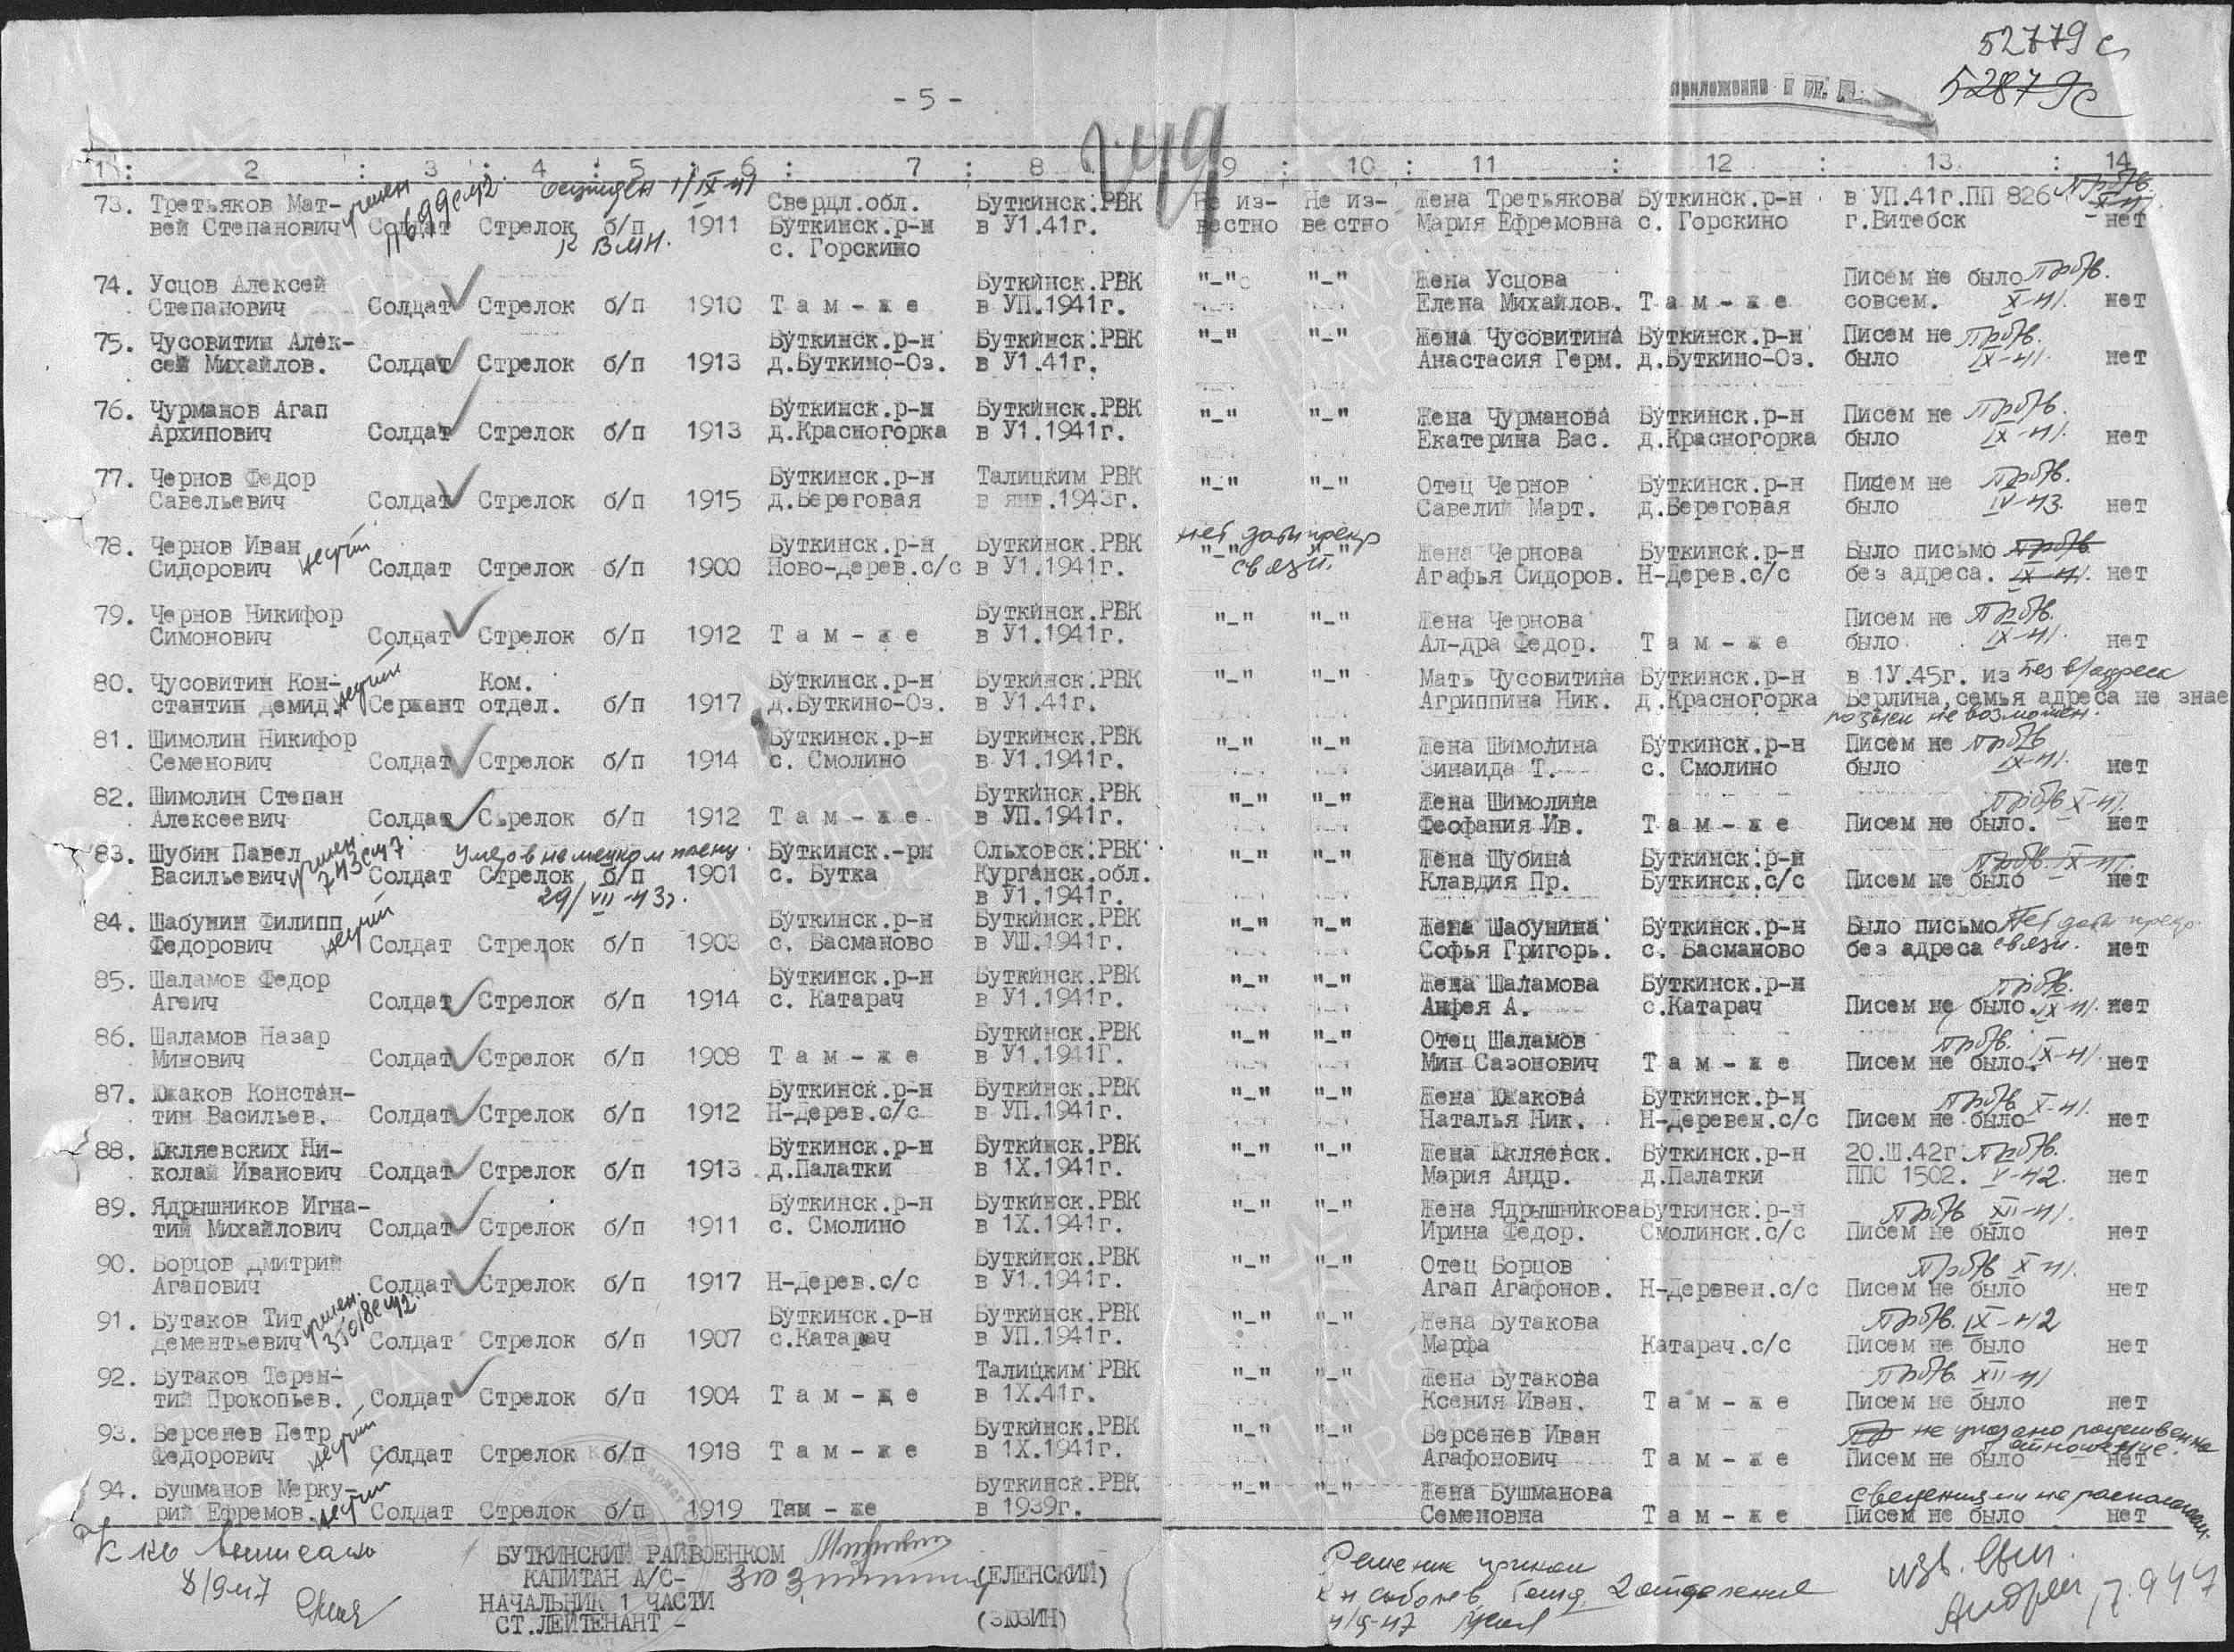 52779 с
52879с
приложение
- 5 -
249
1 : 2 : 3 : 4 : 5 : 6 : 7 : 8 : 9 : 10 : 11 : 12 : 13 : 14
осужден 1/IX-41
73. Третьяков Мат- Свердл.обл. Буткинск.РВК Не из- Не из- Жена Третьякова Буткинск.р-н в УП.41г.ПП 826 пр.б/в.
вей Степанович Солдат Стрелок б/п 1911 Буткинск.р-н в У1.41г. вестно вестно Мария Ефремовна с. Горскино г.Витебск нет
к ВМН. с. Горскино
74. Усцов Алексей Буткинск.РВК "-" "-" Жена Усцова Писем не было пр.б/в.
Степанович Солдат Стрелок б/п 1910 Т а м - ж е в УП.1941г. Елена Михайлов. Т а м - ж е совсем. X-41. нет
75. Чусовитин Алек- Буткинск.р-н Буткинск.РВК "-" "-" Жена Чусовитина Буткинск.р-н Писем не пр.б/в.
сей Михайлов. Солдат Стрелок б/п 1913 д.Буткино-Оз. в У1.41г. Анастасия Герм. д.Буткино-Оз. было IX-41. нет
76. Чурманов Агап Буткинск.р-н Буткинск.РВК "-" "-" Жена Чурманова Буткинск.р-н Писем не пр.б/в.
Архипович Солдат Стрелок б/п 1913 д.Красногорка в У1.1941г. Екатерина Вас. д.Красногорка было IX-41. нет
77. Чернов Федор Буткинск.р-н Талицким РВК "-" "-" Отец Чернов Буткинск.р-н Писем не пр.б/в.
Савельевич Солдат Стрелок б/п 1915 д.Береговая в янв.1943г. Савелий Март. д.Береговая было IV-43. нет
нет даты прекр
78. Чернов Иван Буткинск.р-н Буткинск.РВК "-" "-" Жена Чернова Буткинск.р-н Было письмо пр.б/в
Сидорович Солдат Стрелок б/п 1900 Ново-дерев.с/с в У1.1941г. связи. Агафья Сидоров. Н-Дерев.с/с без адреса. IX-41. нет
79. Чернов Никифор Буткинск.РВК "-" "-" Жена Чернова Писем не пр.б/в.
Симонович Солдат Стрелок б/п 1912 Т а м - ж е в У1.1941г. Ал-дра Федор. Т а м - ж е было IX-41. нет
80. Чусовитин Кон- Ком. Буткинск.р-н Буткинск.РВК "-" "-" Мать Чусовитина Буткинск.р-н в 1У.45г. из без в/адреса
стантин Демид. Сержант отдел. б/п 1917 д.Буткино-Оз. в У1.41г. Агриппина Ник. д.Красногорка Берлина,семья адреса не знае
розыск не возможен.
81. Шимолин Никифор Буткинск.р-н Буткинск.РВК "-" "-" Жена Шимолина Буткинск.р-н Писем не пр.б/в
Семенович Солдат Стрелок б/п 1914 с. Смолино в У1.1941г. Зинаида Т. с. Смолино было IX-41. нет
82. Шимолин Степан Буткинск.РВК "-" "-" Жена Шимолина пр.б/в X-41.
Алексеевич Солдат Стрелок б/п 1912 Т а м - ж е в УП.1941г. Феофания Ив. Т а м - ж е Писем не было. нет
83. Шубин Павел умер в немецком плену. Буткинск.-рн Ольховск.РВК "-" "-" Жена Шубина Буткинск.р-н пр.б/в IX-41.
Васильевич Солдат Стрелок б/п 1901 с. Бутка Курганск.обл. Клавдия Пр. Буткинск.с/с Писем не было нет
29/VII-43г. в У1.1941г.
84. Шабунин Филипп Буткинск.р-н Буткинск.РВК "-" "-" Жена Шабунина Буткинск.р-н Было письмо нет даты прекр.
Федорович Солдат Стрелок б/п 1903 с. Басманово в УШ.1941г. Софья Григорь. с. Басманово без адреса связи. нет
85. Шаламов Федор Буткинск.р-н Буткинск.РВК "-" "-" Жена Шаламова Буткинск.р-н пр.б/в.
Агеич Солдат Стрелок б/п 1914 с. Катарач в У1.1941г. Анфея А. с.Катарач Писем не было. IX-41. нет
86. Шаламов Назар Буткинск.РВК "-" "-" Отец Шаламов пр.б/в.
Минович Солдат Стрелок б/п 1908 Т а м - ж е в У1.1941Г. Мин Сазонович Т а м - ж е Писем не было. IX-41. нет
87. Южаков Констан- Буткинск.р-н Буткинск.РВК "-" "-" Жена Южакова Буткинск.р-н пр.б/в X-41.
тин Васильев. Солдат Стрелок б/п 1912 Н-Дерев.с/с в УП.1941г. Наталья Ник. Н-Деревен.с/с Писем не было нет
88. Юкляевских Ни- Буткинск.р-н Буткинск.РВК "-" "-" Жена Юкляевск. Буткинск.р-н 20.Ш.42г. пр.б/в.
колай Иванович Солдат Стрелок б/п 1913 д.Палатки в 1Х.1941г. Мария Андр. д.Палатки ППС 1502. V-42. нет
89. Ядрышников Игна- Буткинск.р-н Буткинск.РВК "-" "-" Жена Ядрышникова Буткинск.р-н пр.б/в XII-41.
тий Михайлович Солдат Стрелок б/п 1911 с. Смолино в 1Х.1941г. Ирина Федор. Смолинск.с/с Писем не было нет
90. Борцов Дмитрий Буткинск.РВК "-" "-" Отец Борцов пр.б/в X-41.
Агапович Солдат Стрелок б/п 1917 Н-Дерев.с/с в У1.1941г. Агап Агафонов. Н-Деревен.с/с Писем не было нет
91. Бутаков Тит Буткинск.р-н Буткинск.РВК "-" "-" Жена Бутакова пр.б/в. IX-42
Дементьевич Солдат Стрелок б/п 1907 с.Катарач в УП.1941г. Марфа Катарач.с/с Писем не было нет
92. Бутаков Терен- Талицким РВК "-" "-" Жена Бутакова пр.б/в. XII-41
тий Прокопьев. Солдат Стрелок б/п 1904 Т а м - же в 1Х.41г. Ксения Иван. Т а м - ж е Писем не было нет
93. Берсенев Петр Буткинск.РВК "-" "-" Берсенев Иван не указано родственна
Федорович Солдат Стрелок б/п 1918 Т а м - ж е в 1Х.1941г. Агафонович Т а м - ж е Писем не было нет отношение.
94. Бушманов Мерку- Буткинск.РВК "-" "-" Жена Бушманова сведениями не располагаем.
рий Ефремов. Солдат Стрелок б/п 1919 Там - же в 1939г. Семеновна Т а м - ж е Писем не было нет
БУТКИНСКИЙ РАЙВОЕНКОМ
КАПИТАН А/С- (ЕЛЕНСКИЙ)
НАЧАЛЬНИК 1 ЧАСТИ
СТ.ЛЕЙТЕНАНТ - (ЗЮЗИН)
8/9 47
2 отделения
4/9-47